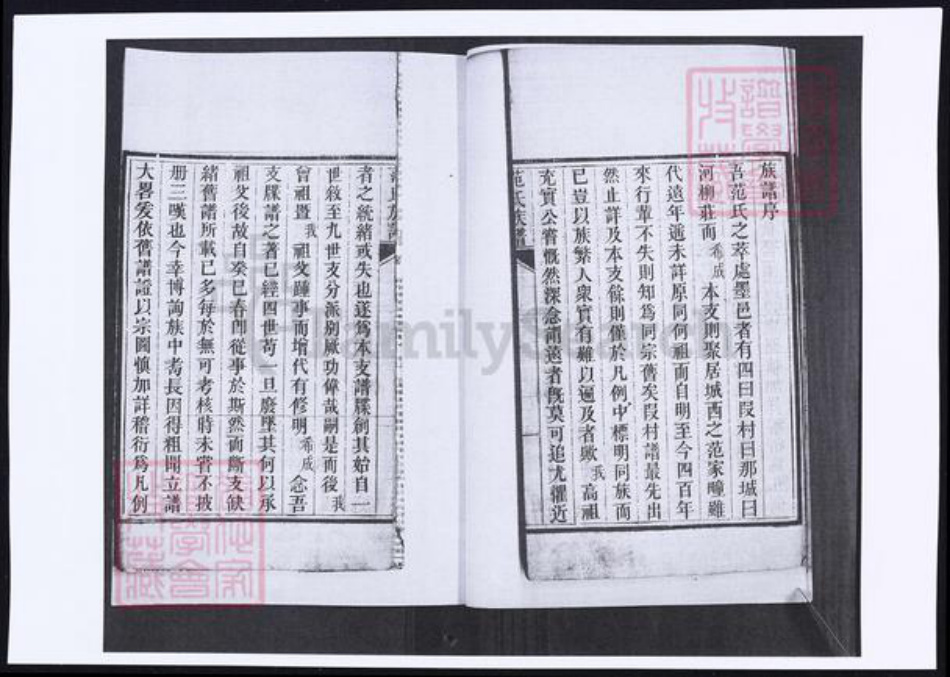 族譜序
吾范氏之萃處墨邑者有四曰叚村曰那城曰
河柳莊而希成本支則聚居城西之范家疃雖
代遠年遞未詳原同何祖而自明至今四百年
來行輩不失則知為同宗舊矣叚村譜最先出
然止詳及本支餘則僅於凡例中標明同族而
已豈以族繁人衆實有難以遍及者歟我高祖
充實公嘗慨然深念甭遠者旣莫可追尤懼近
范氏族譜
者之統緒或失也遂為本支譜牒創其始自一
世敘至九世支分派別厥功偉哉嗣是而後我
曾祖暨我祖父踵事而增代有修明希成念吾
支牒譜之著已經四世苟一旦廢墜其何以承
祖父後故自癸巳春卽從事於斯然而斷支缺
緒舊譜所載已多每於無可考核時未嘗不披
册三嘆也今幸博詢族中耆長因得粗聞立譜
大畧爰依舊譜證以宗圖慎加詳稽衍為凡例
FamilySearch